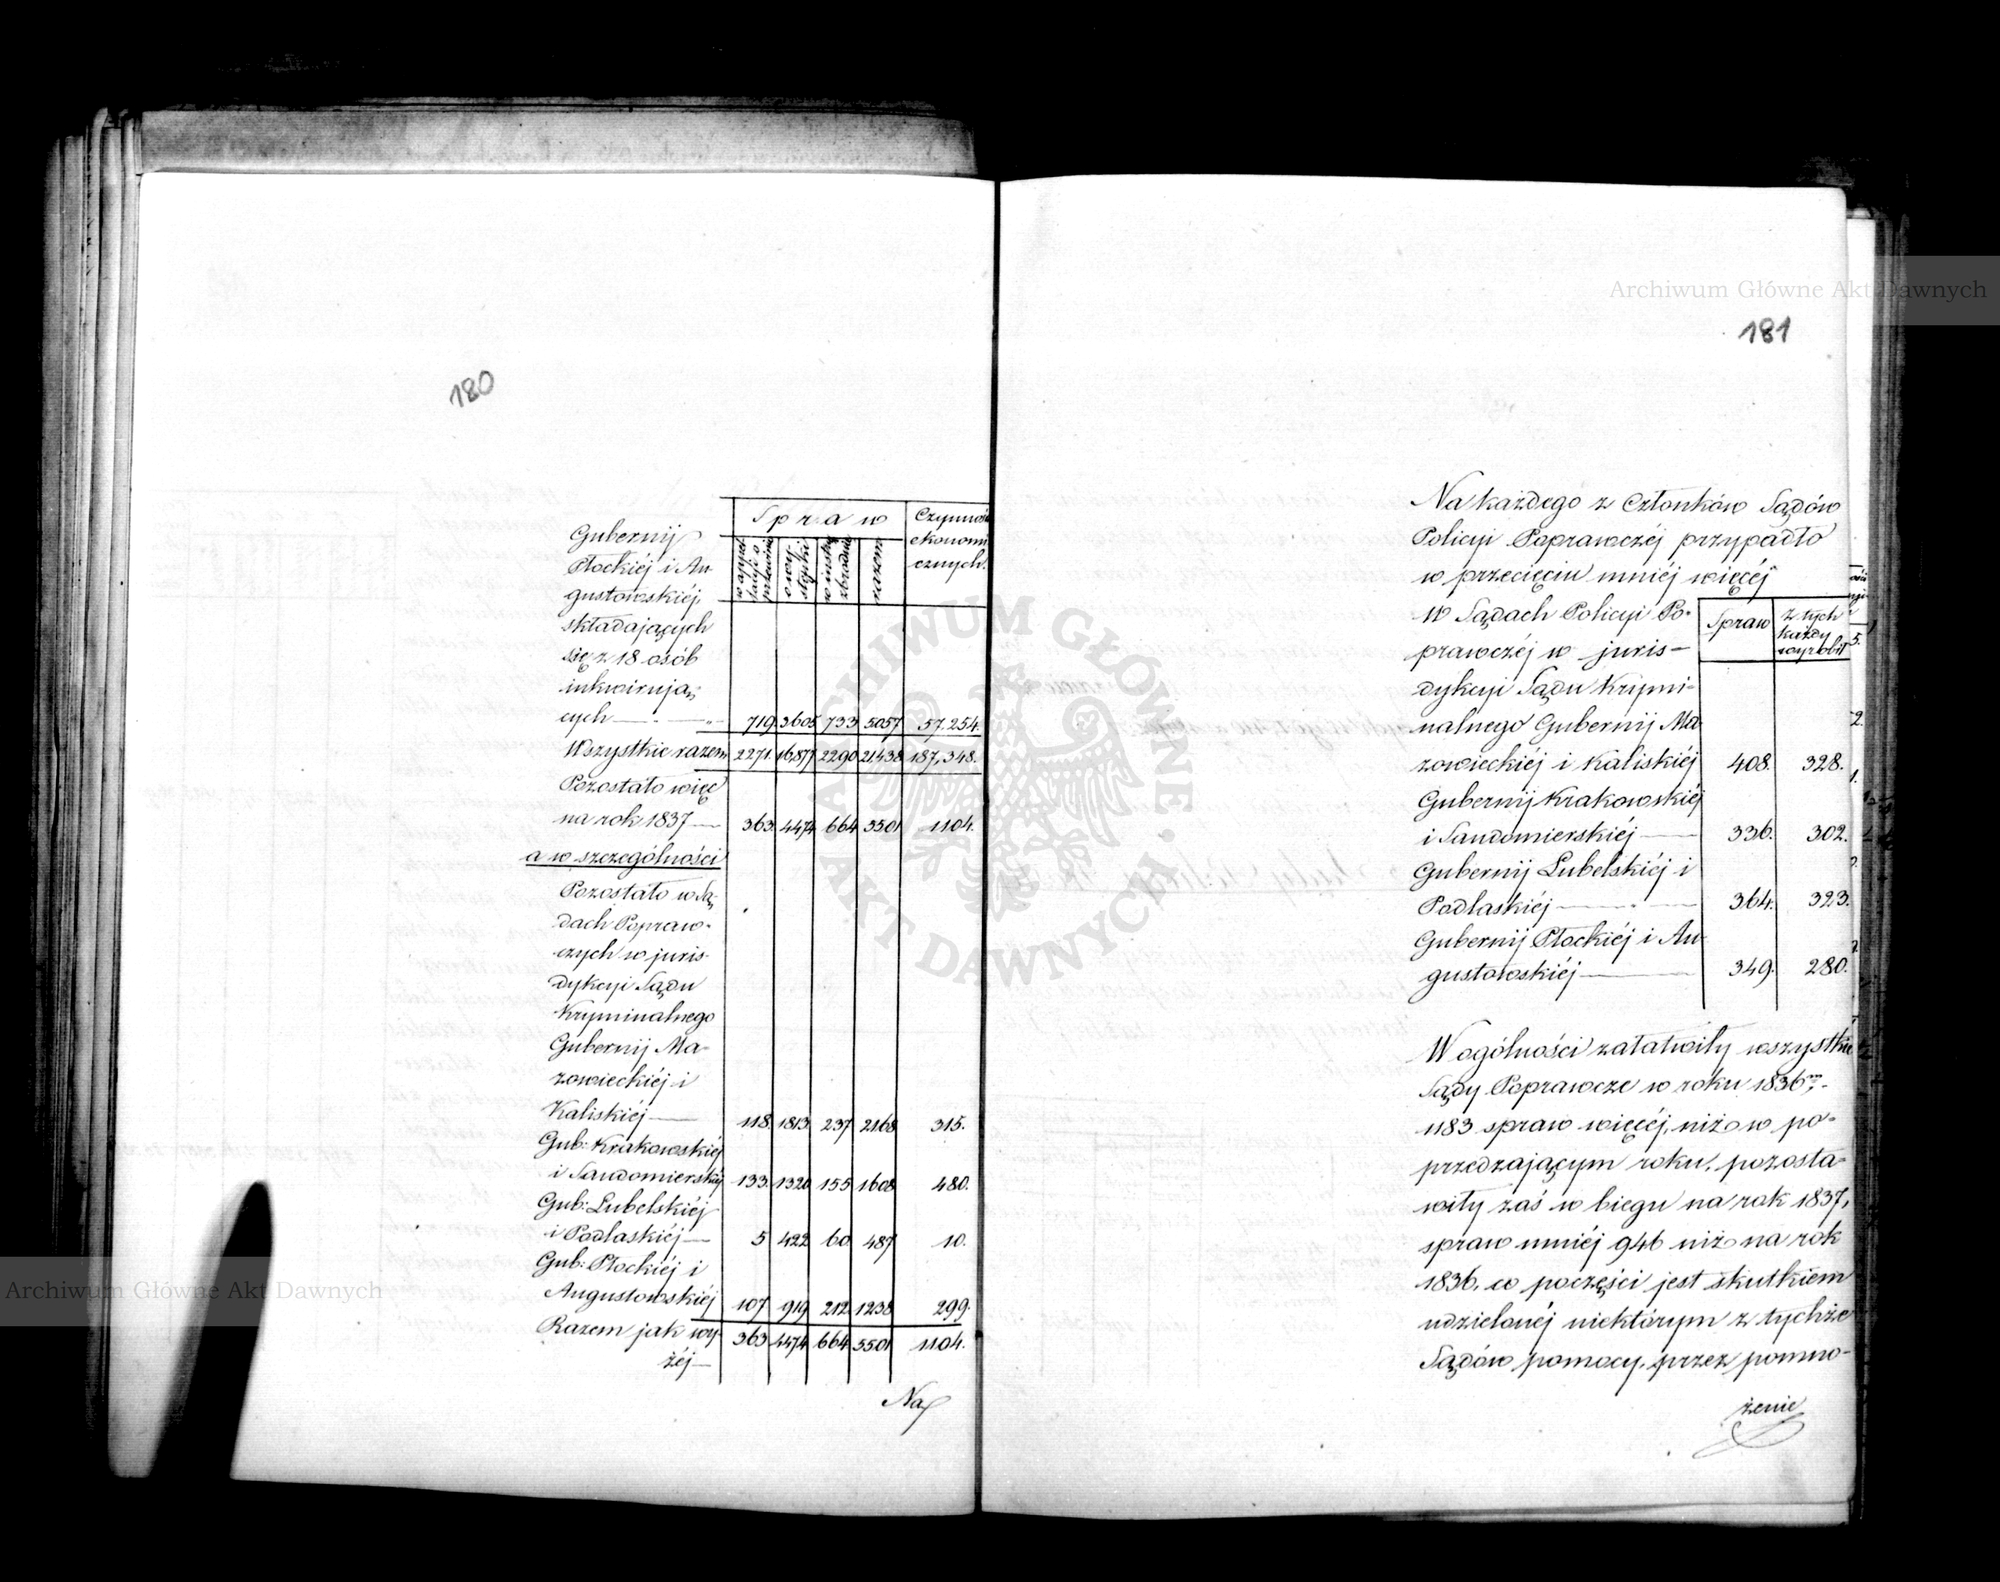 180
Spraw
Czynności
ekonomi
cznych.
w appel
lacii o
o wy
stępki
w inst.
zbrodnie
razem
Gubernij
Płockiéj i Au
gustowskiéj,
składających
się z 18 osób
inkwirują-
cych — 719. 3605 733 5057 57,254.
Wszystkie razem 2271. 16,877 2290 21438 187,348.
Pozostało więc
na rok 1837 — 363. 4474 664 5501 1104.
a w szczególności
Pozostało w Są-
dach Popraw-
czych w juris-
dykcyi Sądu
Kryminalnego
Gubernij Ma-
zowieckiéj i
Kaliskiéj — 118. 1813. 237 2168 315.
Gub: Krakowskiéj
i Sandomierskiéj 133. 1320 155 1608 480.
Gub: Lubelskiéj
i Podlaskiéj — 5 422 60 487 10.
Gub: Płockiéj i
Augustowskiéj 107 919 212 1238 299.
Razem jak wy- 363 4474 664 5501 1104.
żéj —
Na
181
Na każdego z Członków Sądów
Policyi Poprawczéj przypadło
w przecięciu mniéj więcéj
Spraw
z tych
każdy
wyrobił
W Sądach Policyi Po-
prawczéj w juris-
dykcyi Sądu Krymi-
nalnego Gubernij Ma
zowieckiéj i Kaliskiéj 408. 328.
Gubernij Krakowskiéj
i Sandomierskiéj — 336. 302.
Gubernij Lubelskiéj i
Podlaskiéj — 364. 323.
Gubernij Płockiéj i Au-
gustowskiéj — 349. 280.
W ogólności załatwiły wszystkie
Sądy Poprawcze w roku 1836m
1183 spraw więcéj, niż w po-
przedzającym roku, pozosta-
wiły zaś w biegu na rok 1837,
spraw mniéj 946 niż na rok
1836, co poczęści jest skutkiem
udzielonéj niektórym z tychże
Sądów pomocy, przez pomno-
żenie
Archiwum Główne Akt Dawnych
Archiwum Główne Akt Dawnych
ARCHIWUM GŁÓWNE AKT DAWNYCH